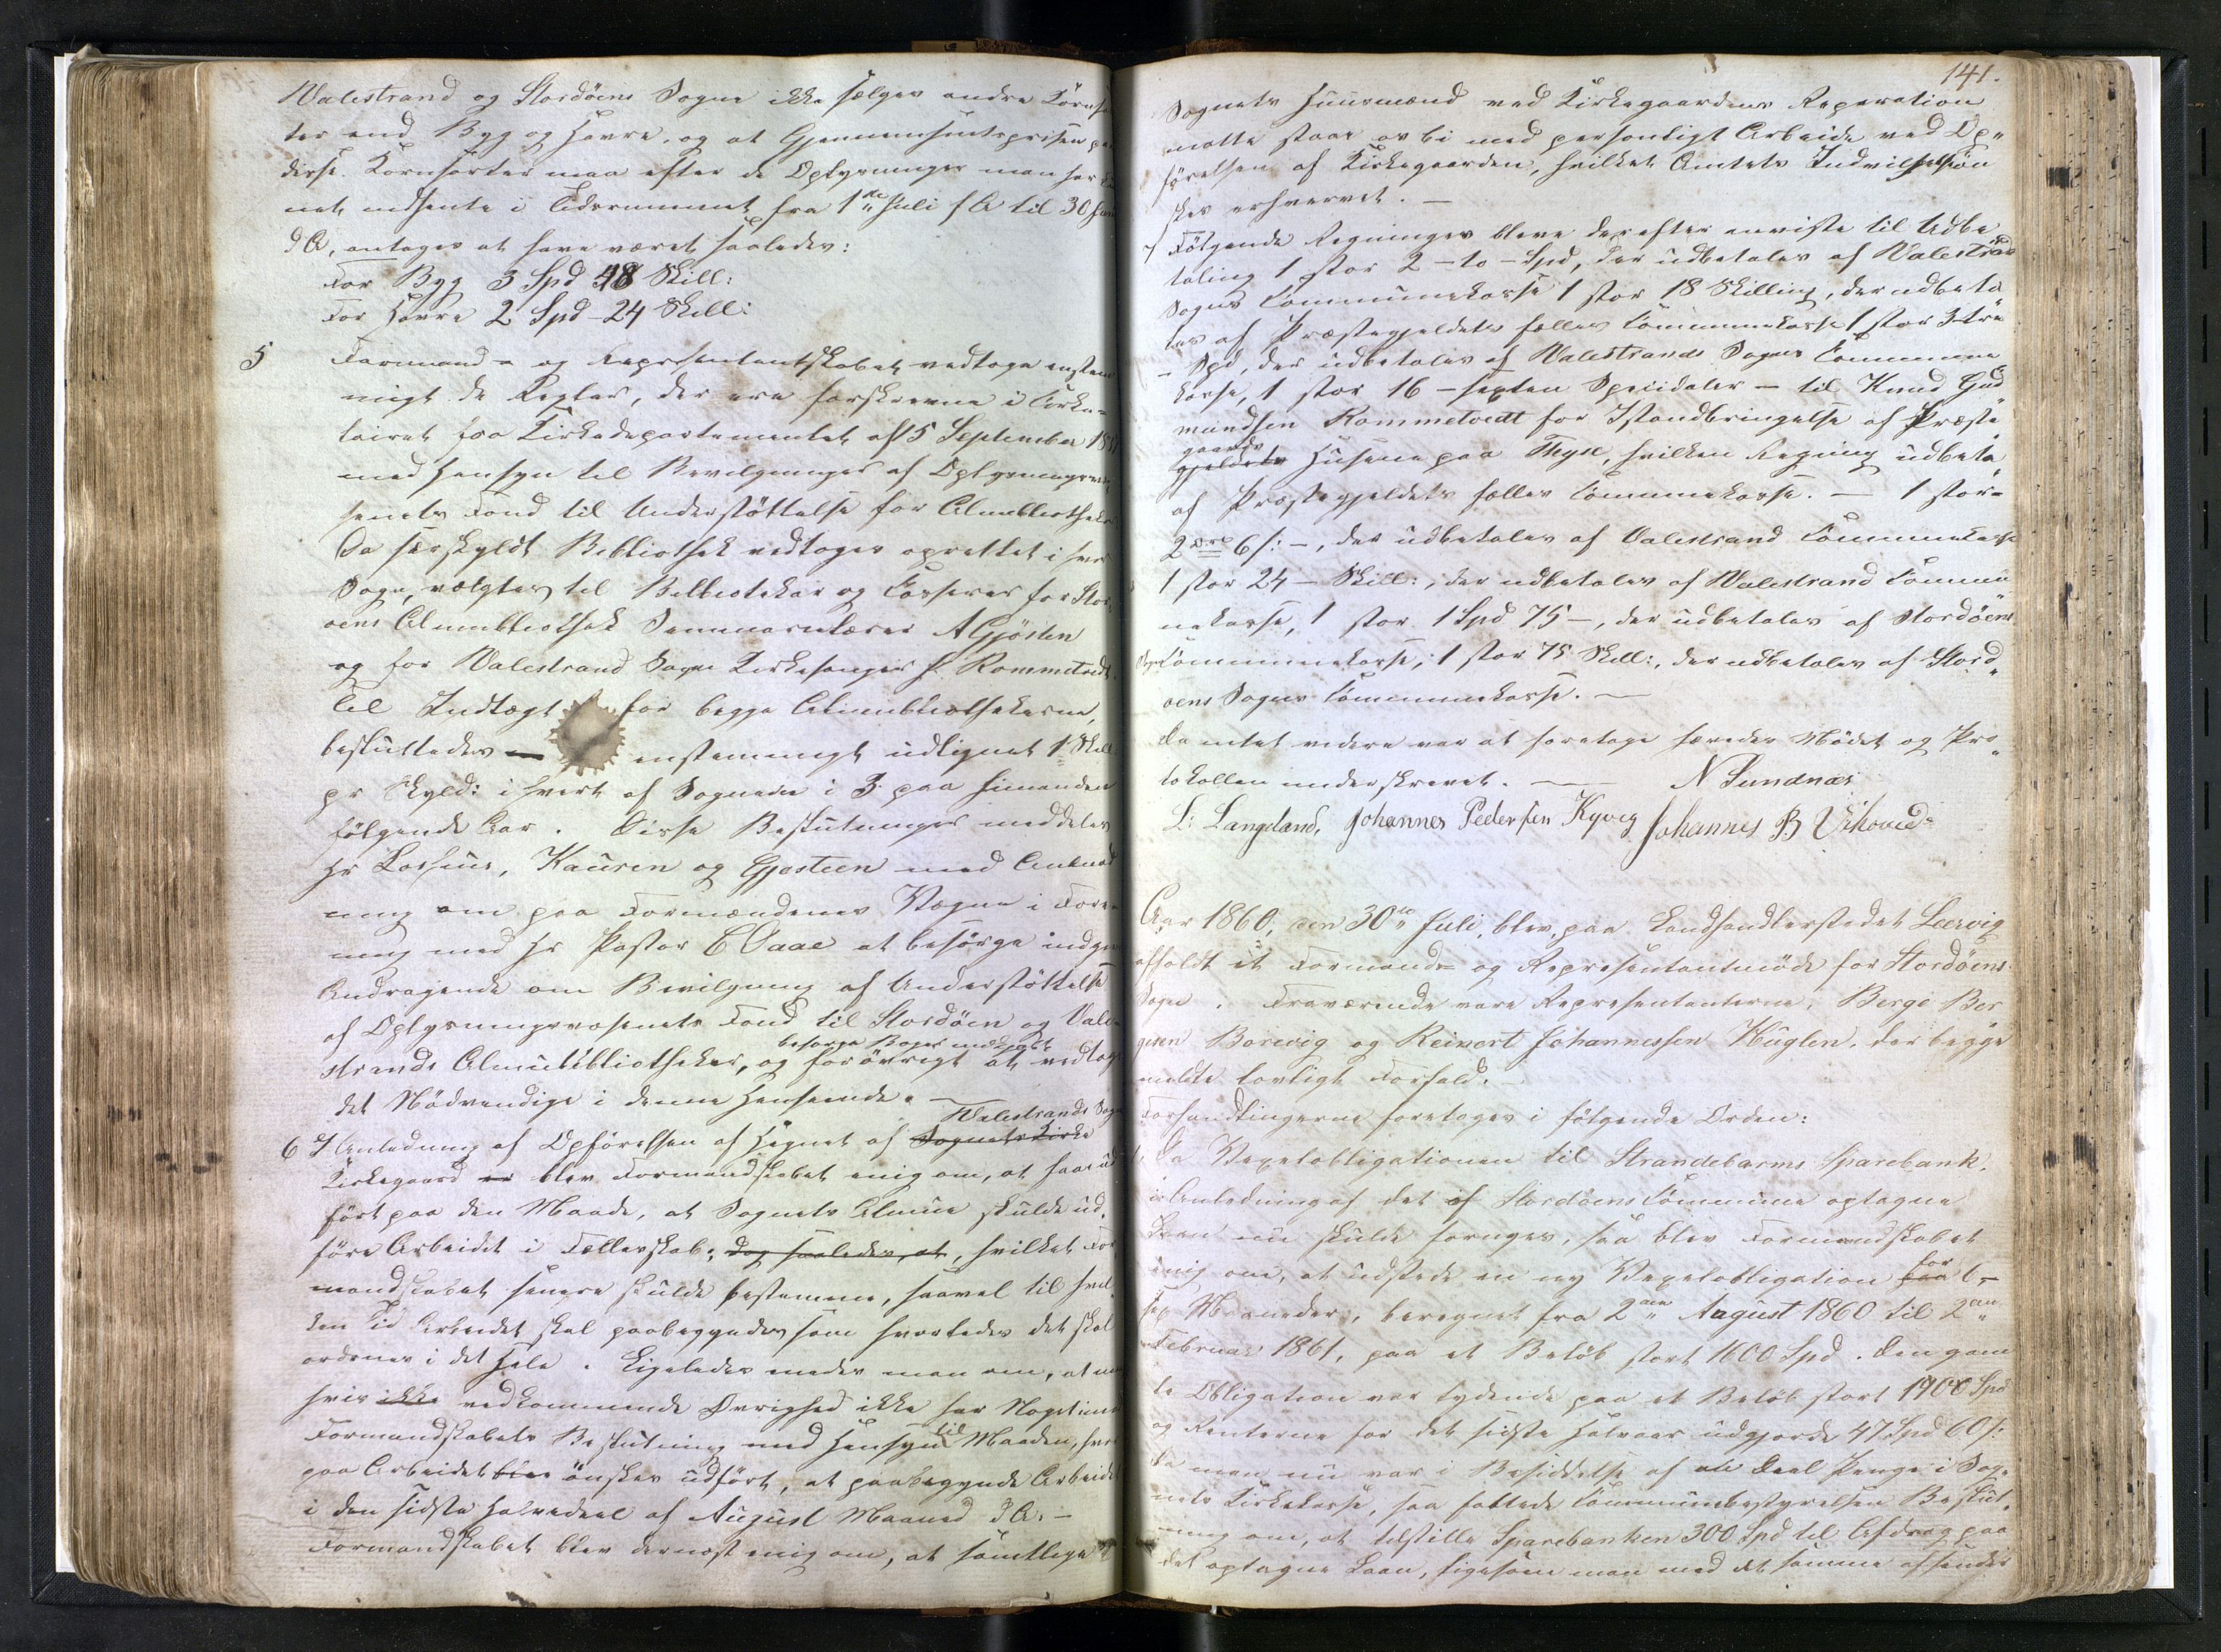 Walestrand og Stordöens Sogne ikke sælges andre Kornsor
ter end Byg og Havre, og at Gjennemsnitsprisen paa
disse Kornsorter maa efter de Oplysninger man har
indhente i Tidsrummet fra 1ste Juli f A til 30 Juni
d A, antages at have været saaledes:
For Byg 3 Spd 48 Skill:
For Havre 2 Spd - 24 Skill:
5 Formand- og Repræsentantskabet vedtoge enstem
migt de Regler, der ere forskrevne i Cirku-
lairet fra Kirkedepartementet af 5 September
med Hensyn til Bevilgninger af Oplysningsvæ
senets Fond til Understöttelse for Almubliotheker
Da særskyldt Bibliothek vedtoges oprettet i hver
Sogn, valgtes til Bibliotekar og Casserer for Stor
öens Almubliothek Seminarielærer A Gjösten
og for Walestrand Sogn Kirkesanger H. Rommetvedt.
Til Indtægt for begge Almubliothekerne,
besluttedes enstemmigt udlignet 1 Skill
pr Skyld: i hvert af Sognene i 3 paa hinanden
fölgende Aar. Disse Beslutninger meddeles
Hr Lossius, Kauren og Gjosteen med Anmod
ning om paa Formændenes Vegne i Fore-
ning med Hr Pastor C Daae at besörge indgivet
Andragende om Bevilgning af Understöttelse
af Oplysningsvæsenets Fond til Stordöen og Vale-
besörge Böger indkjöbt
strands Almubibliotheker, og forövrigt at vedtage
det Nödvendige i denne Henseende. —
Walestrands Sogn
6 I Anledning af Opförelsen af Hegnet af Sognets Kirke
Kirkegaard blev Formandskabet enig om, at faae ud
fört paa den Maade, at Sognets Almue skulde ud-
före Arbeidet i Fællesskab, dog saaledes, at, hvilket For
mandskabet senere skulde bestemme, saavel til hvil
ken Tid Arbeidet skal paabegyndes som hvorledes det skal
ordnes i det Hele. Ligeledes enedes man om, at man
hvis ikke vedkommende Övrighed ikke har Noget imod
til
Formandskabets Beslutning med Hensyn Maaden, hvor
paa Arbeidet blev önskes udfört, at paabegynde Arbeidet
i den sidste Halvedeel af August Maaned d A. —
Formandskabet blev dernæst enig om, at samtlige
141.
Sognets Huusmænd ved Kirkegaardens Reparation
maatte staae os bi med personligt Arbeide ved Op-
förelsen af Kirkegaarden, hvilket Amtets Indvilgelse
skes erhvervet. —
7 Fölgende Regninger bleve derefter anviste til Udbe
taling 1 stor 2 - to - Spd, der udbetales af Valestrand
Sogns Communekasse 1 stor 18 Skilling, der udbeta
les af Præstegjeldets fælles Communekasse 1 stor 3 - tre
- Spd, der udbetales af Walestrands Sogns Commune
kasse, 1 stor 16 - sexten Speciedaler - til Knud Gud
mundsen Rommetvedt for Istandbringelse af Præste
gaards
gjeldets Husene paa Thyse, hvilken Regning udbeta
af Præstegjeldets fælles Communekasse. — 1 stor -
2 6 s: -, der udbetales af Valestrand Communekasse
1 stor 24 - Skill:, der udbetales af Walestrand Commu
nekasse, 1 stor 1 Spd 75 -, der udbetales af Stordöens
Sogns Communekasse, 1 stor 75 Skill:, der udbetales af Stord
öens Sogns Communekasse. —
Da intet videre var at foretage hævedes Mödet og Pro
tokollen underskrevet. — N Sundnæs
L: Langeland, Johannes Pedersen Kyvig Johannes B Vikanæs
Aar 1860, den 30te Juli, blev paa Landhandlerstedet Leervig
afholdt et Formands- og Repræsentantmöde for Stordöens
Sogn. Fraværende vare Repræsentanterne, Berge Ber
gesen Borevig og Reinert Johannessen Huglen, der begge
meldte lovligt Forfald. —
Forhandlingerne foretoges i fölgende Orden:
1, Da Vexelobligationen til Strandebarms Sparebank,
i Anledning af det af Stordöens Commune optagne
Laan nu skulde fornyes, saa blev Formandskabet
for
enig om, at udstede en ny Vexelobligation paa 6 -
sex Maaneder, beregnet fra 2den August 1860 til 2den
Februar 1861, paa et Belöb stort 1600 Spd. Den gam
le Obligation var lydende paa et Belöb stort 1900 Spd
og Renterne for det sidste Halvaar udgjorde 47 Spd 60 s:
Da man nu var i Besiddelse af en Deel Penge i Sog-
nets Kirkekasse, saa fattede Communebestyrelsen Beslut-
ning om, at tilstille Sparebanken 300 Spd til Afdrag paa
det optagne Laan, ligesom man med det samme afsender